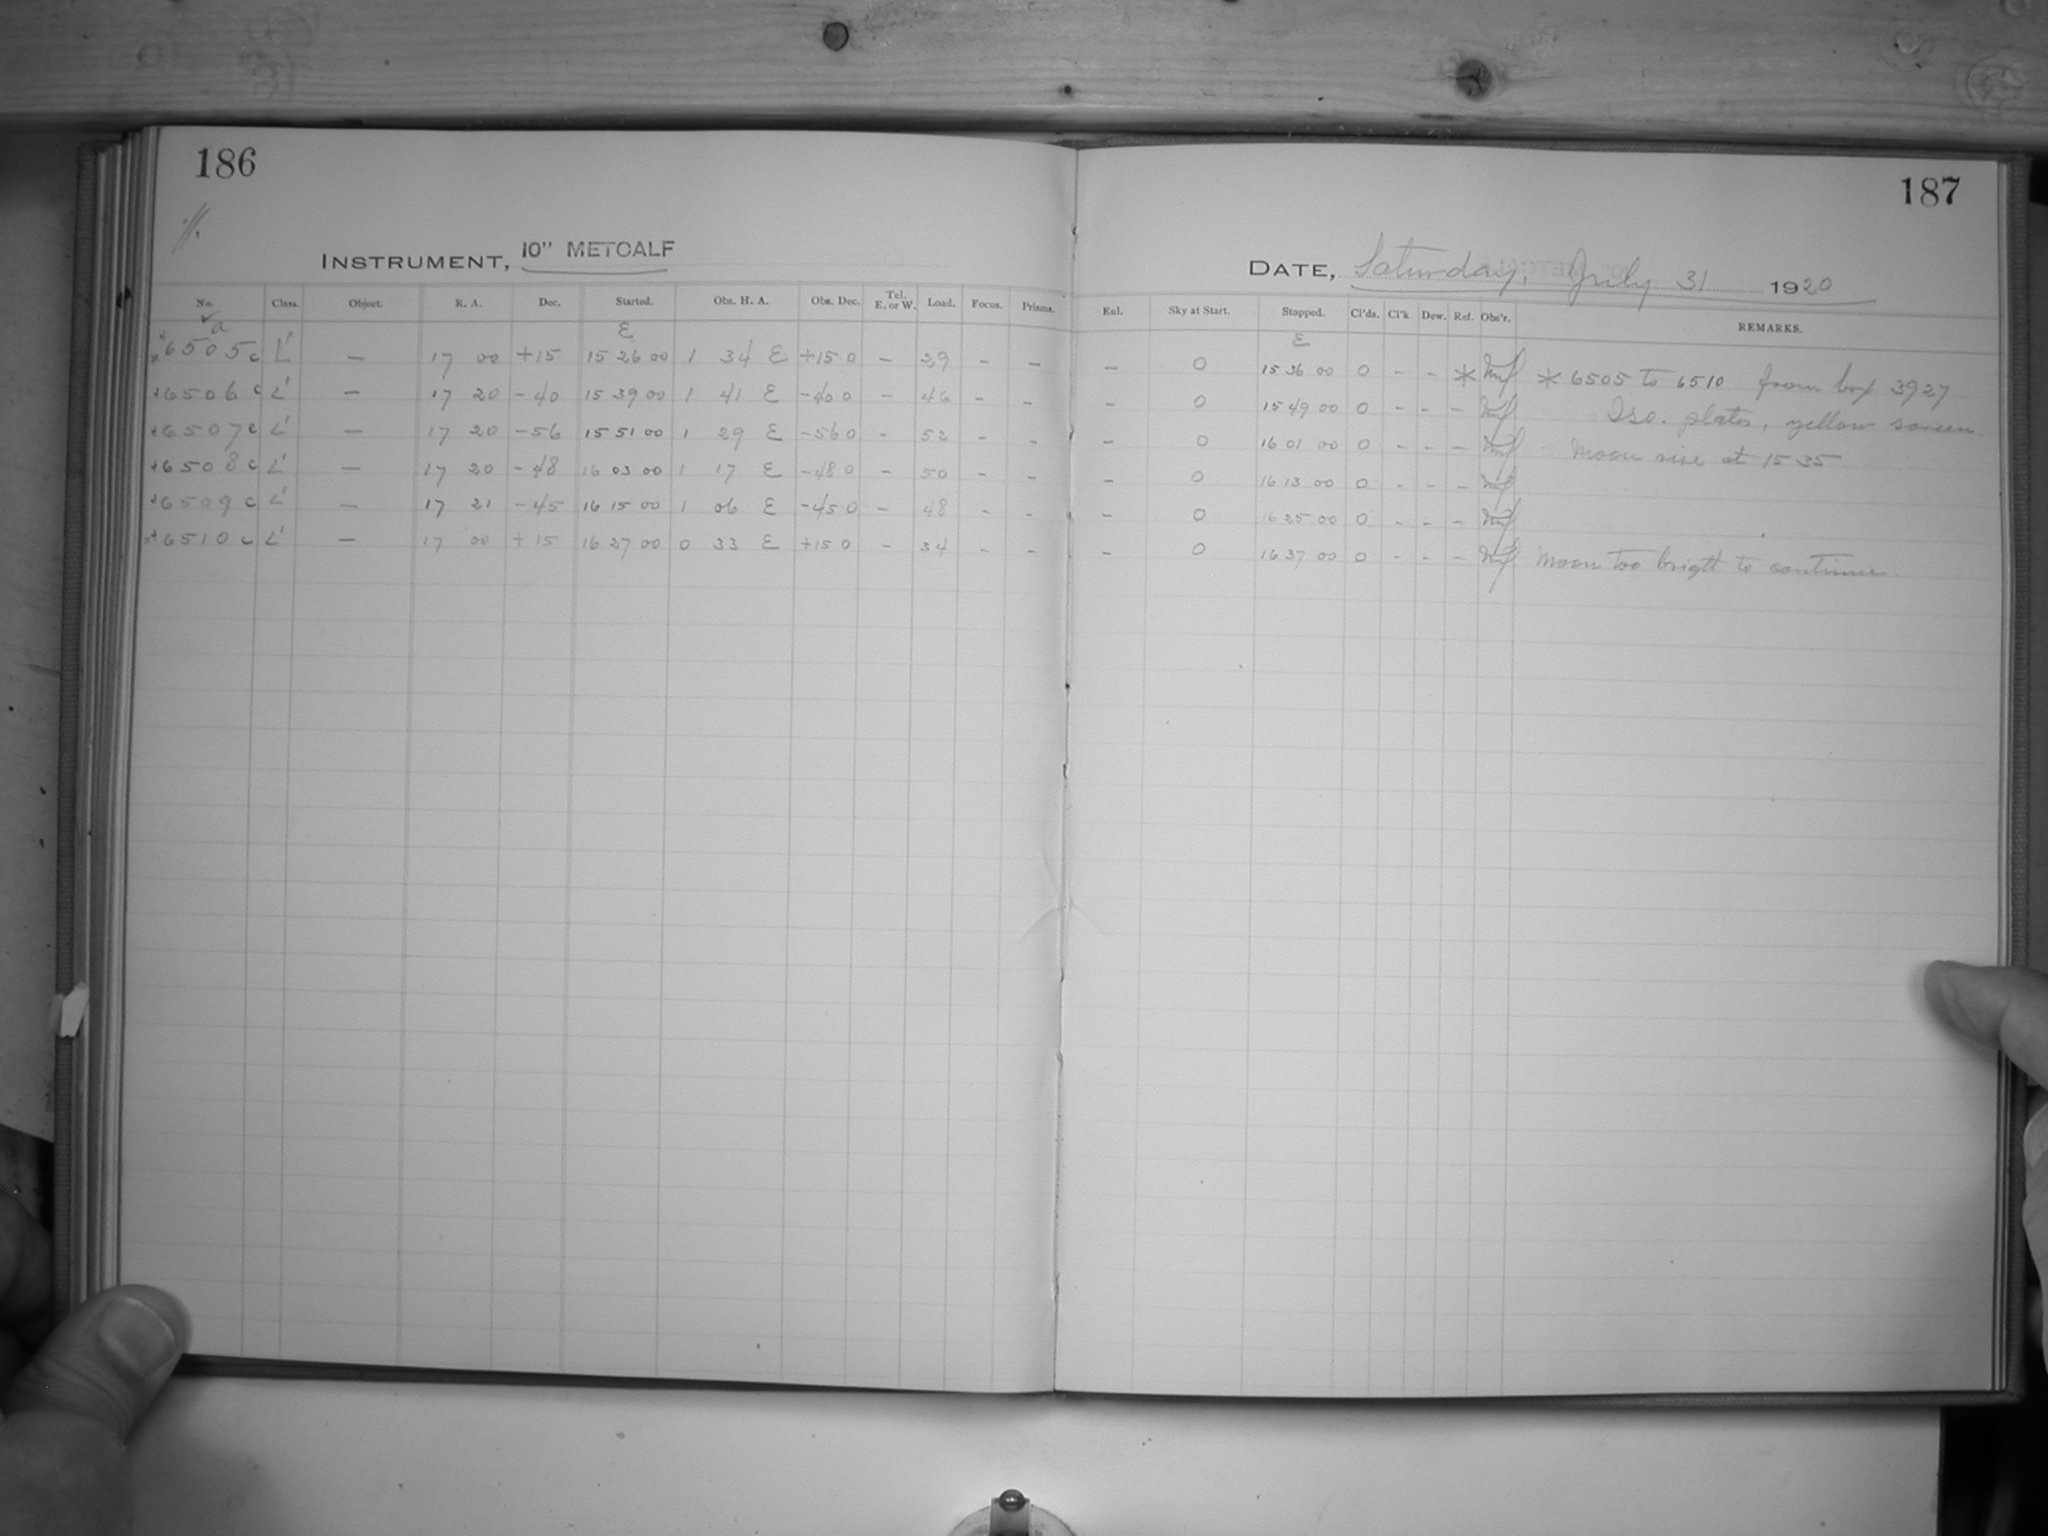 186
INSTRUMENT, 10" METCALF
No. Class. Object. R. A. Dec. Started. Obs. H. A. Obs. Dec. Tel. E. or W. Load. Focus. Prisms.
a
E
6505 c L' — 17 00 +15 15 26 00 1 34 E +15 0 - 29 - -
6506 c L' — 17 20 -40 15 39 00 1 41 E -40 0 - 46 - -
6507 c L' — 17 20 -56 15 51 00 1 29 E -56 0 - 52 - -
6508 c L' — 17 20 -48 16 03 00 1 17 E -48 0 - 50 - -
6509 c L' — 17 21 -45 16 15 00 1 06 E -45 0 - 48 - -
6510 c L' — 17 00 +15 16 27 00 0 33 E +15 0 - 34 - -
187
DATE, Saturday, July 31 1920
Rul. Sky at Start. Stopped. Cl'ds. Cl'k. Dew. Ref. Obs'r. REMARKS.
E
- 0 15 36 00 0 - - * * 6505 to 6510 from box 3927
- 0 15 49 00 0 - - - Iso. plates, yellow screen.
- 0 16 01 00 0 - - - Moon rise at 15 35
- 0 16 13 00 0 - - -
- 0 16 25 00 0 - - -
- 0 16 37 00 0 - - - Moon too bright to continue.